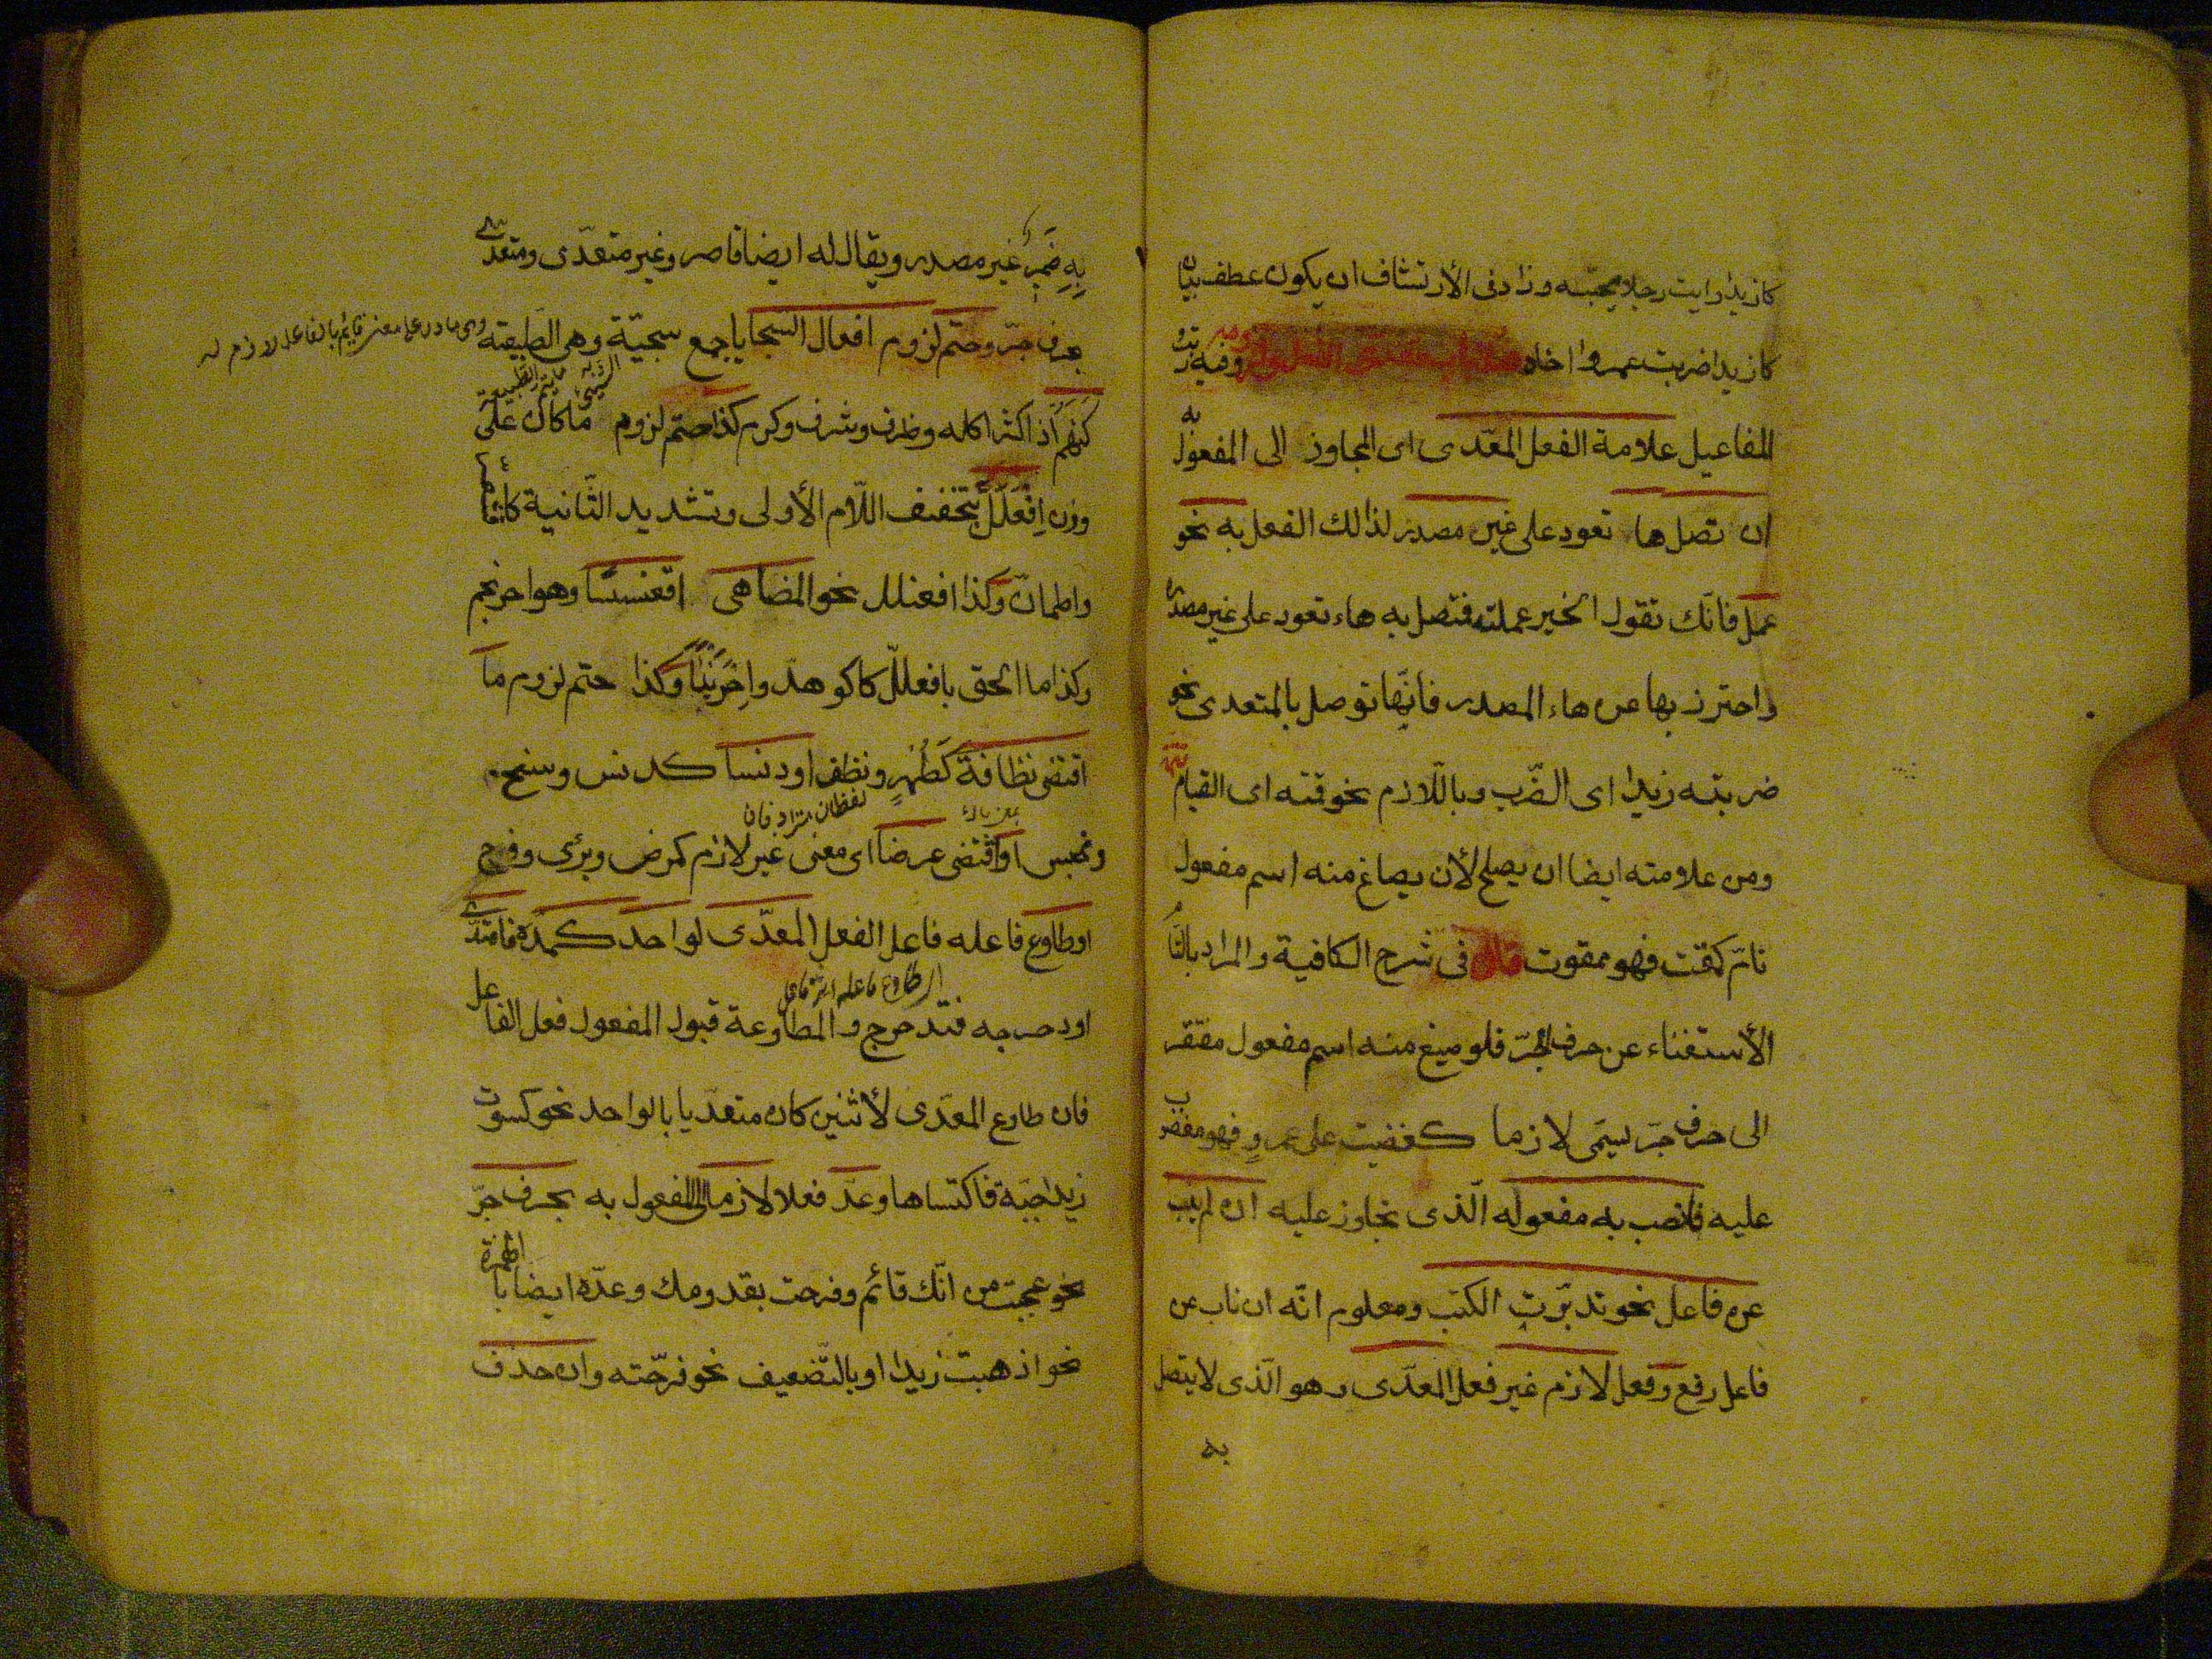 كازيدا رايت رجلا يحبّه وزاد فى الأرتشاف ان يكون عطف بيان
كازيدا ضربت عمروا اخاه وفيه رتب
المفاعيل علامة الفعل المعدّى اى المجاوز الى المفعول به
ان تصل ها تعود على غير مصدر لذالك الفعل به نحو
عمل فانّك تقول الخير عملته فتصل به هاء تعود على غير مصدره
واحترز بها عن هاء المصدر فانّها توصل بالمتعدى نحو
ضربته زيدا اى الضّرب وباللّازم نحو قمته اى القيام
ومن علامته ايضا ان يصلح لأن يصاغ منه اسم مفعول
تامّ كمقت فهو ممقوت قال فى شرح الكافية والمراد بالتّام
الأستغناء عن حرف الجرّ فلو صيغ منه اسم مفعول مفتقر
الى حرف جرّ سمّى لازما كغضبت على عمرو فهو مغضوب
عليه فانصب به مفعوله الّذى تجاوز عليه ان لم ينب
عن فاعل نحو تدبّرت الكتب ومعلوم انّه ان ناب عن
فاعل رفع وفعل لازم غير فعل المعدّى وهو الّذى لا يتصل
به
به ضمير غير مصدر ويقال له ايضا قاصر وغير متعدّى ومتعدّى
بحرف جرّ وحتم لزوم افعال السّجايا جمع سجيّة وهى الطّبيعة
كنهم اذا كثر اكله وظرف وشرف وكرم كذا حتم لزوم ما كان على
وزن اِفْعَلَلَّ بتخفيف اللّام الأولى وتشديد الثّانية كاقشعرّ
واطمانّ وكذا افعنلل نحو المضاهى اقعنسسا وهو احرنجم
وكذا ما الحق بافعللّ كاكوهدّ واحرنبا وكذا حتم لزوم ما
اقتضى نظافة كطهر ونظف او دنسا كدنس ووسخ
ونجس او اقتضى عرضا اى معنى غير لازم كمرض وبرئ وفرح
لفظان مترادفان
او طاوع فاعله فاعل الفعل المعدّى لواحد كمدّه فامتدّا
او دحرجه فتدحرج والمطاوعة قبول المفعول فعل الفاعل
فان طاوع المعدى لأثنين كان متعدّيا بالواحد نحو كسوت
زيدا جبّة فاكتساها وعدّ فعلا لازما الى المفعول به بحرف جرّ
نحو عجبت من انّك قائم وفرحت بقدومك وعدّه ايضا بالهمزة
نحو اذهبت زيدا او بالتّضعيف نحو فرّحته وان حذف